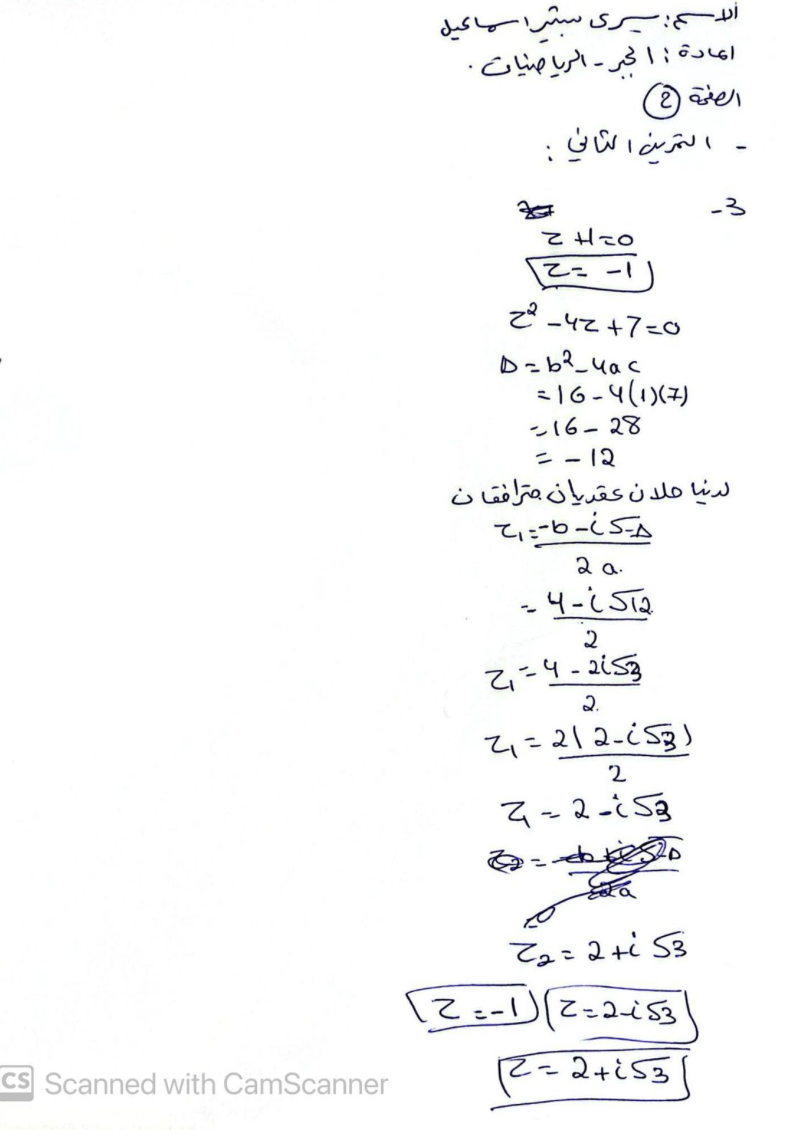 الاسم: يسرى سبتير اسماعيل
المادة: الجبر - الرياضيات.
الصفحة 2
- التمرين الثاني:
3-
z+1=0
z = -1
z² - 4z + 7 = 0
Δ = b² - 4ac
= 16 - 4(1)(7)
= 16 - 28
= - 12
لدينا حلان عقديان مترافقان
z₁ = (-b - i√-Δ) / 2a.
= (4 - i√12) / 2
z₁ = (4 - 2i√3) / 2.
z₁ = 2(2 - i√3) / 2
z₁ = 2 - i√3
z₂ = (-b + i√-Δ) / 2a
z₂ = 2 + i√3
z = -1 z = 2 - i√3
z = 2 + i√3
CS Scanned with CamScanner